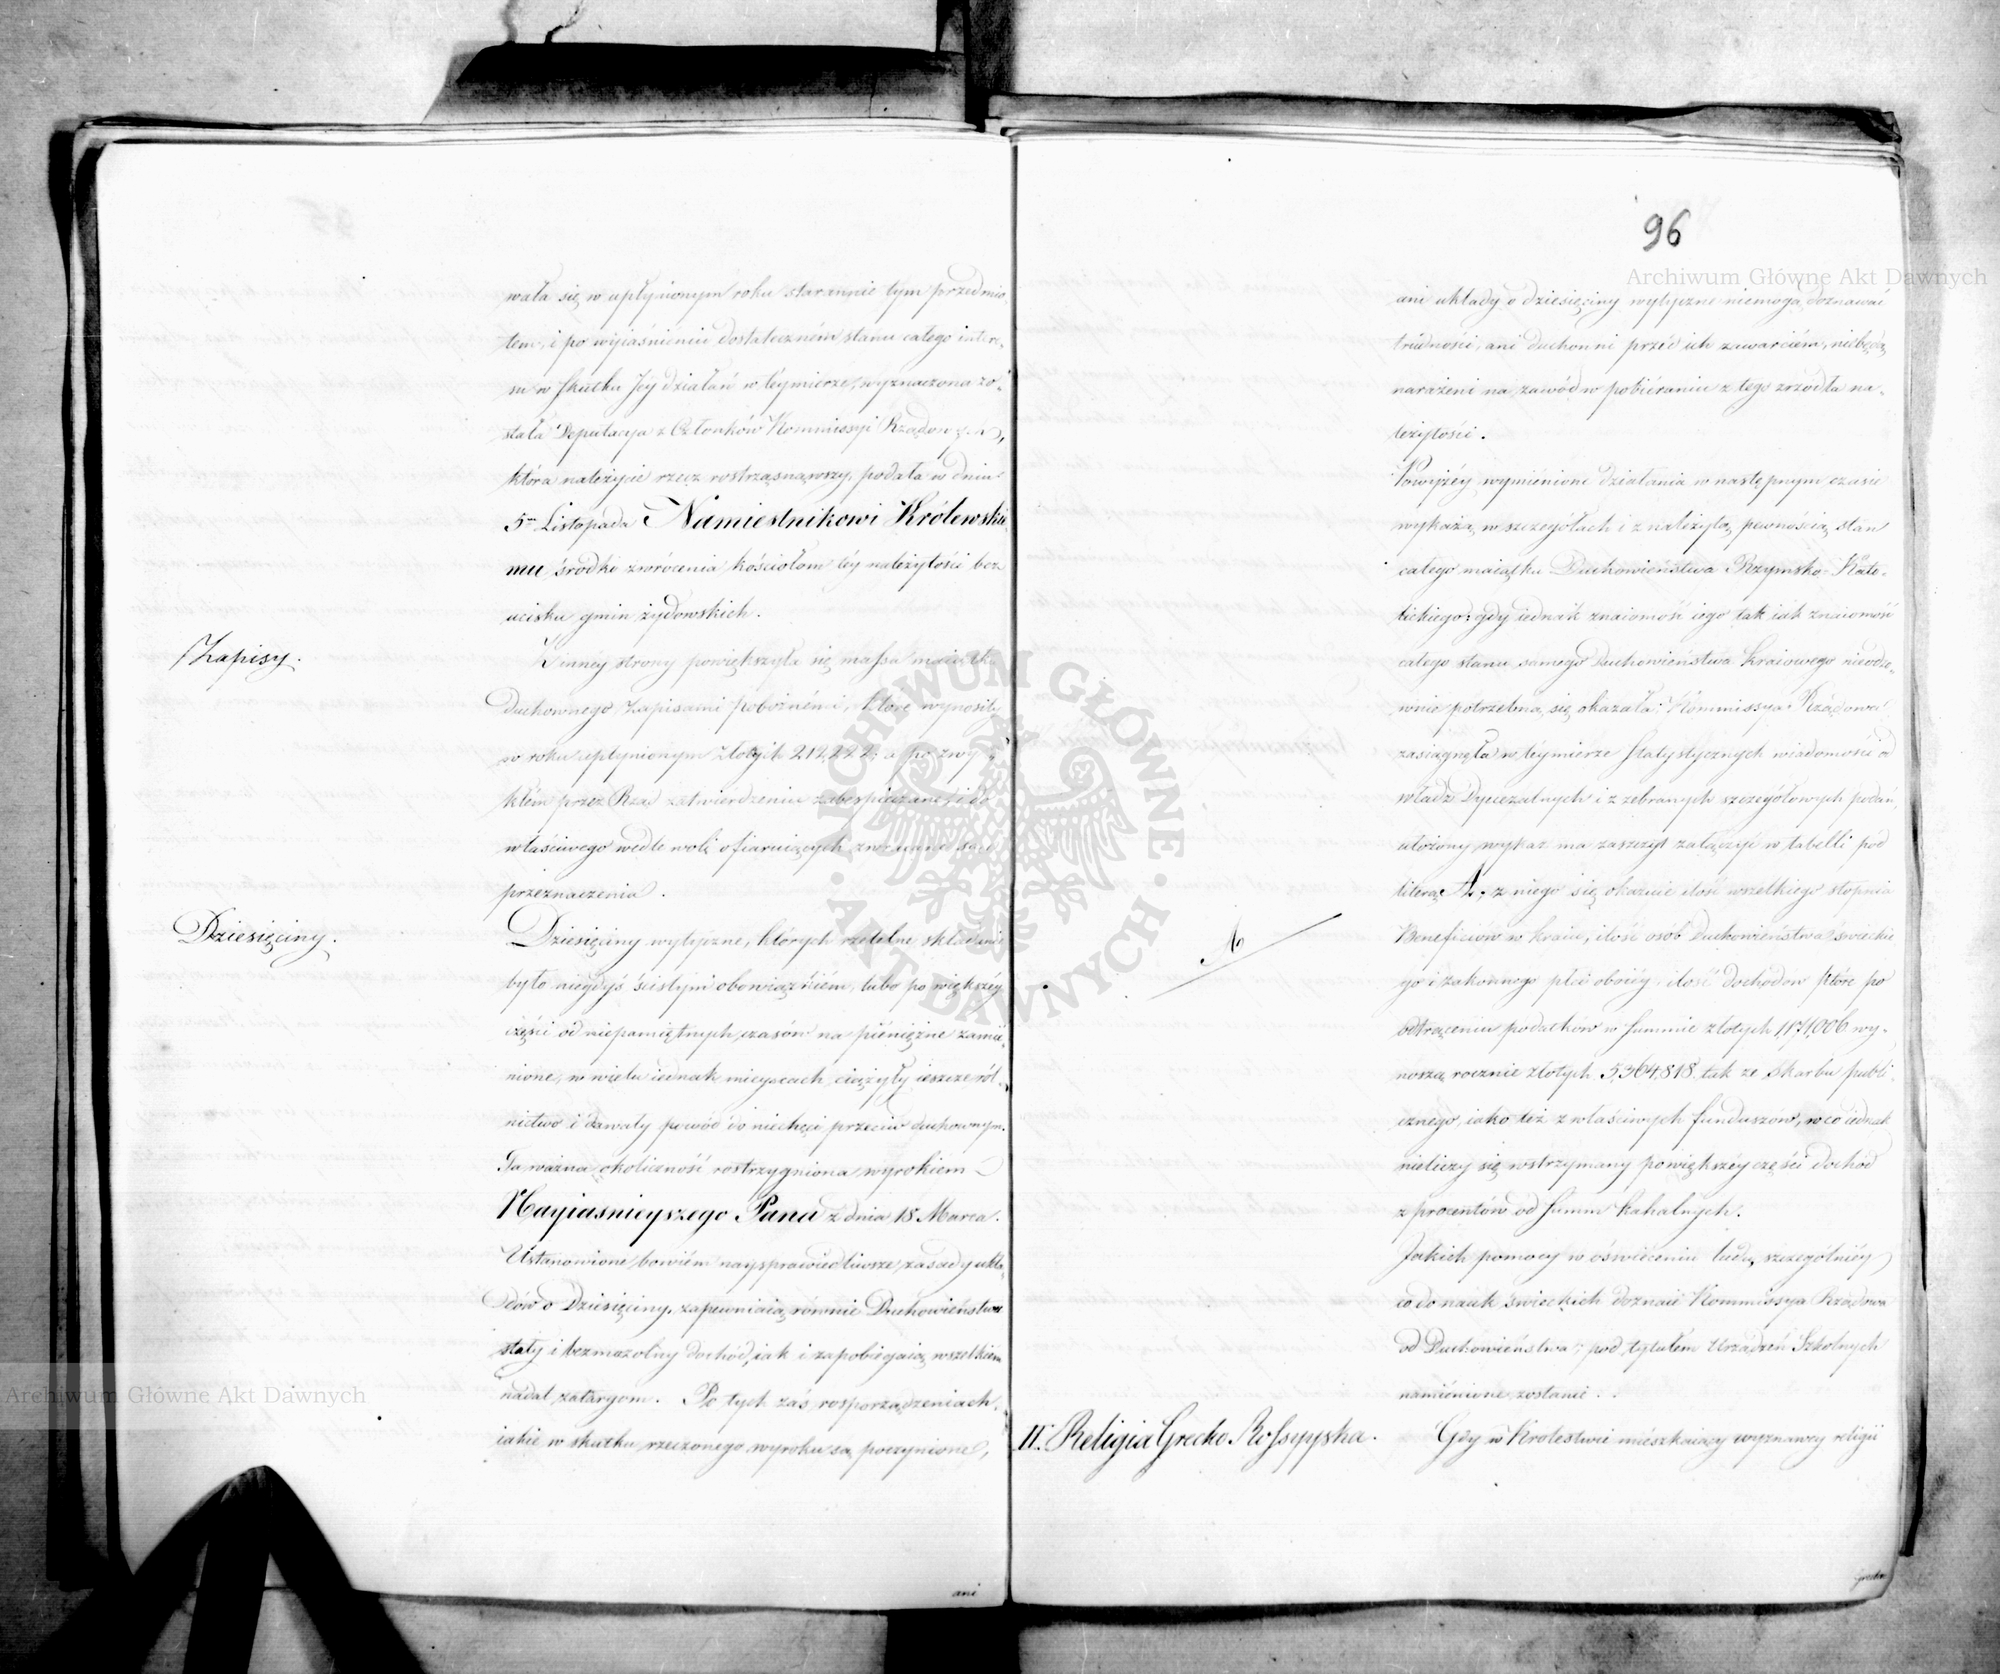 wała się w upłynionym roku starannie tym przedmio-
tem, i po wyiaśnieniu dostateczném stanu całego intere-
su w skutku Jéy działań w téymierze, wyznaczona zo-
stała Deputacya z Członków Kommissyi Rządowéy,
która należycie rzecz rostrząsnąwszy, podała w dniu
5m Listopada Namiestnikowi Królewskie-
mu środki zwrócenia kościołom téy należytości bez
ucisku gmin żydowskich.
Zapisy.
Z inney strony powiększyła się massa maiątku
duchownego Zapisami pobożnémi, które wynosiły
w roku upłynionym Złotych 212,222; a po zwy-
kłém przez Rząd zatwierdzeniu zabespieczane, i do
właściwego wedle woli ofiaruiących zwracane są
przeznaczenia.
Dziesięciny.
Dziesięciny wytyczne, których rzetelne składanie
było niegdyś ścisłym obowiązkiem, lubo po większéy
części od niepamiętnych czasów na pieniężne zamie-
nione, w wielu iednak mieyscach ciążyły ieszcze rol-
nictwo i dawały powód do niechęci przeciw duchownym.
Ta ważna okoliczność rostrzygniona wyrokiem
Nayiasnieyszego Pana z dnia 18 Marca.
Ustanowione bowiém nayprawiedliwsze zasady ukła-
dów o Dziesięciny, zapewniaią równie Duchowieństwu
stały i bezmozolny dochód, iak i zapobiegaią wszelkiém
nadal zatargom. Po tych zaś rosporządzeniach,
iakie w skutku rzeczonego wyroku są poczynione,
ani
96
ani układy o dziesięciny wytyczne niemogą doznawać
trudności, ani duchowni przéd ich zawarciém, niebędą
narażeni na zawód w pobiéraniu z tego zrzódła na-
leżytości.
Powyżéy wymienione działania w następnym czasie
wykażą w szczegółach i z należytą pewnością stan
całego maiątku Duchowieństwa Rzymsko-Kato-
lickiego: gdy iednak znaiomość iego tak iak znaiomość
całego stanu samego Duchowieństwa kraiowego nieodzo-
wnie potrzebną się okazała; Kommissya Rządowa
zasiągnęła w téymierze statystycznych wiadomości od
władz Dyecezalnych i z zebranych szczegółowych podań
ułożony wykaz ma zaszczyt załączyć w tabelli pod
literą A, z niego się okazuie ilość wszelkiego stopnia
A
Beneficiów w kraiu, ilość osób Duchowieństwa świeckie-
go i zakonnego płci oboiéy, ilość dochodów które po
odtrąceniu podatków w summie złotych 1,171,006 wy-
noszą rocznie złotych 5,364,818 tak ze Skarbu publi-
cznego, iako też z właściwych funduszów, w co iednak
nieliczy się wstrzymany powiększéy części dochód
z procentów od summ kahalnych.
Jakich pomocy w oświeceniu ludu, szczególniéy
co do nauk świeckich doznaie Kommissya Rządowa
od Duchowieństwa; pod tytułem Urządzeń Szkolnych
namiénione zostanie.
II. Religia Grecko Rossyyska.
Gdy w Krolestwie mieszkaiący wyznawcy religii
Archiwum Główne Akt Dawnych
Archiwum Główne Akt Dawnych
ARCHIWUM GŁÓWNE · AKT DAWNYCH ·